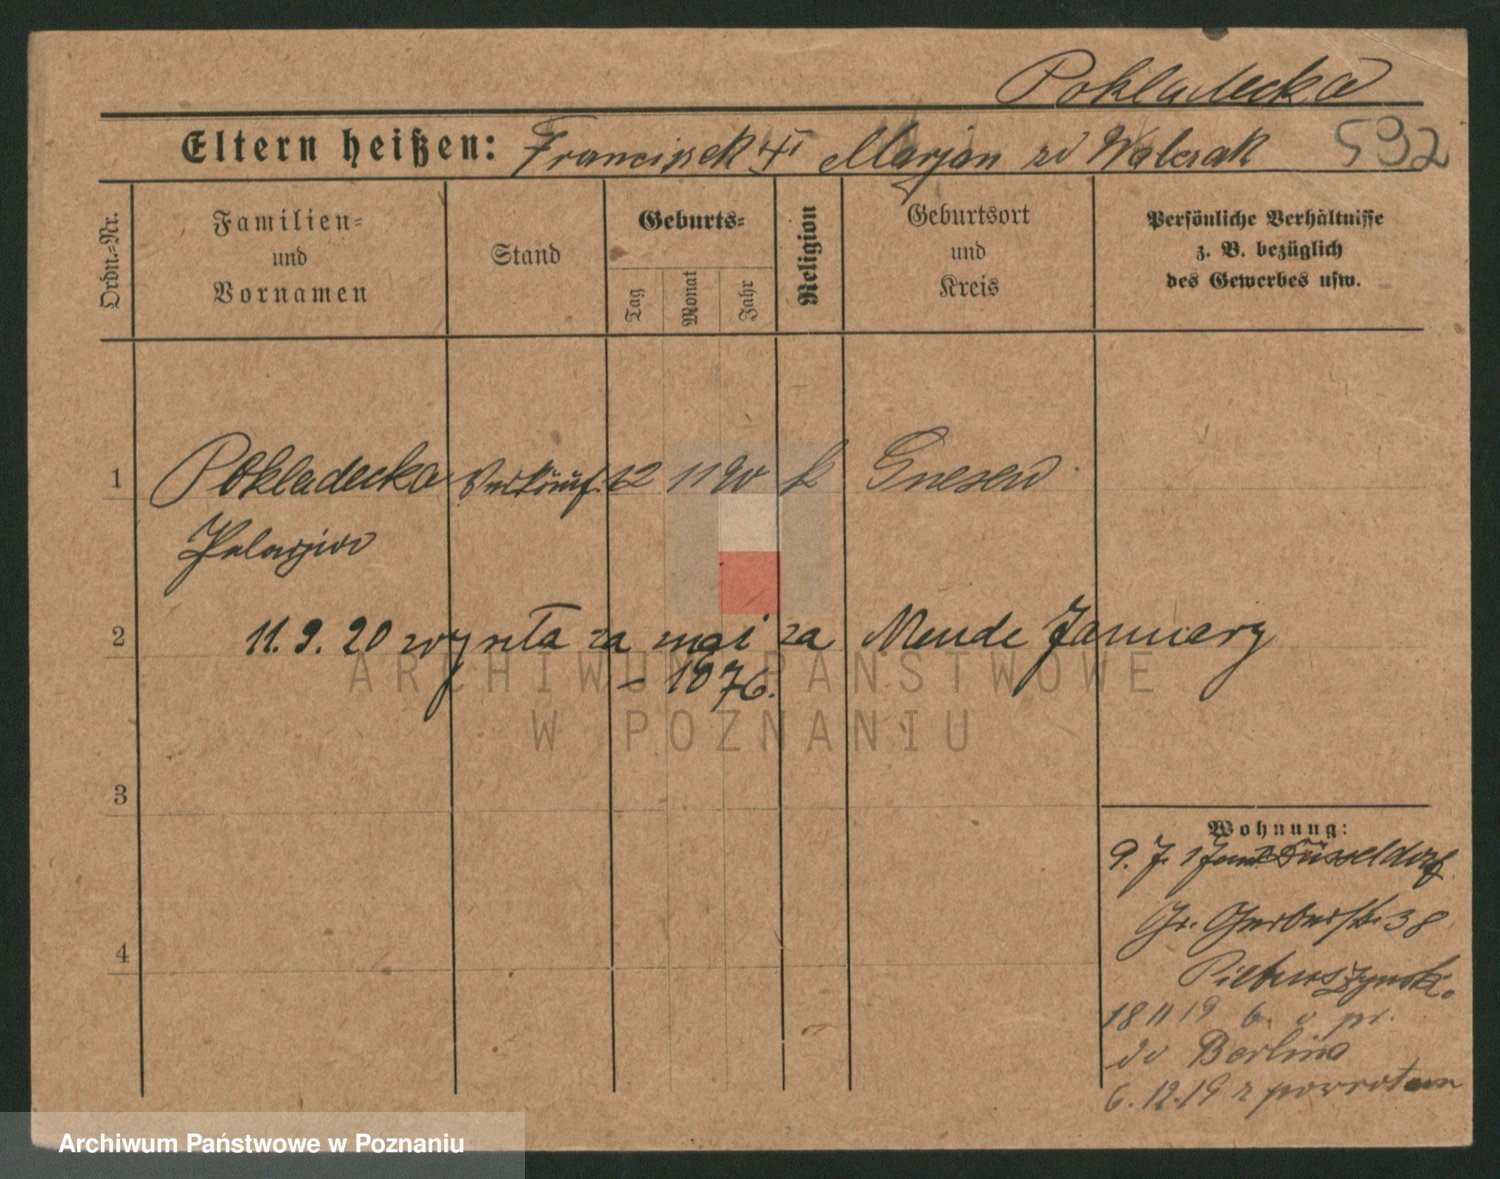 Pokladecka
Eltern heißen: Franciszek Marjan Walczak 592
Ordn.-Nr.
Familien- und Vornamen
Stand
Geburts-
Tag
Monat
Jahr
Religion
Geburtsort und Kreis
Persönliche Verhältnisse z. B. bezüglich des Gewerbes usw.
1 Pokladecka Verkäuf. 12 11 90 k Gnesen
Pelagja
2 11. 9. 20 wyszła za mąż za Mende January
1876.
3
4
Wohnung:
9. 7. Düsseldorf
Gr. Gerberstr. 38
18 11 19 6. v pr.
do Berlina
6. 12. 19 z powrotem
ARCHIWUM PAŃSTWOWE
W POZNANIU
Archiwum Państwowe w Poznaniu